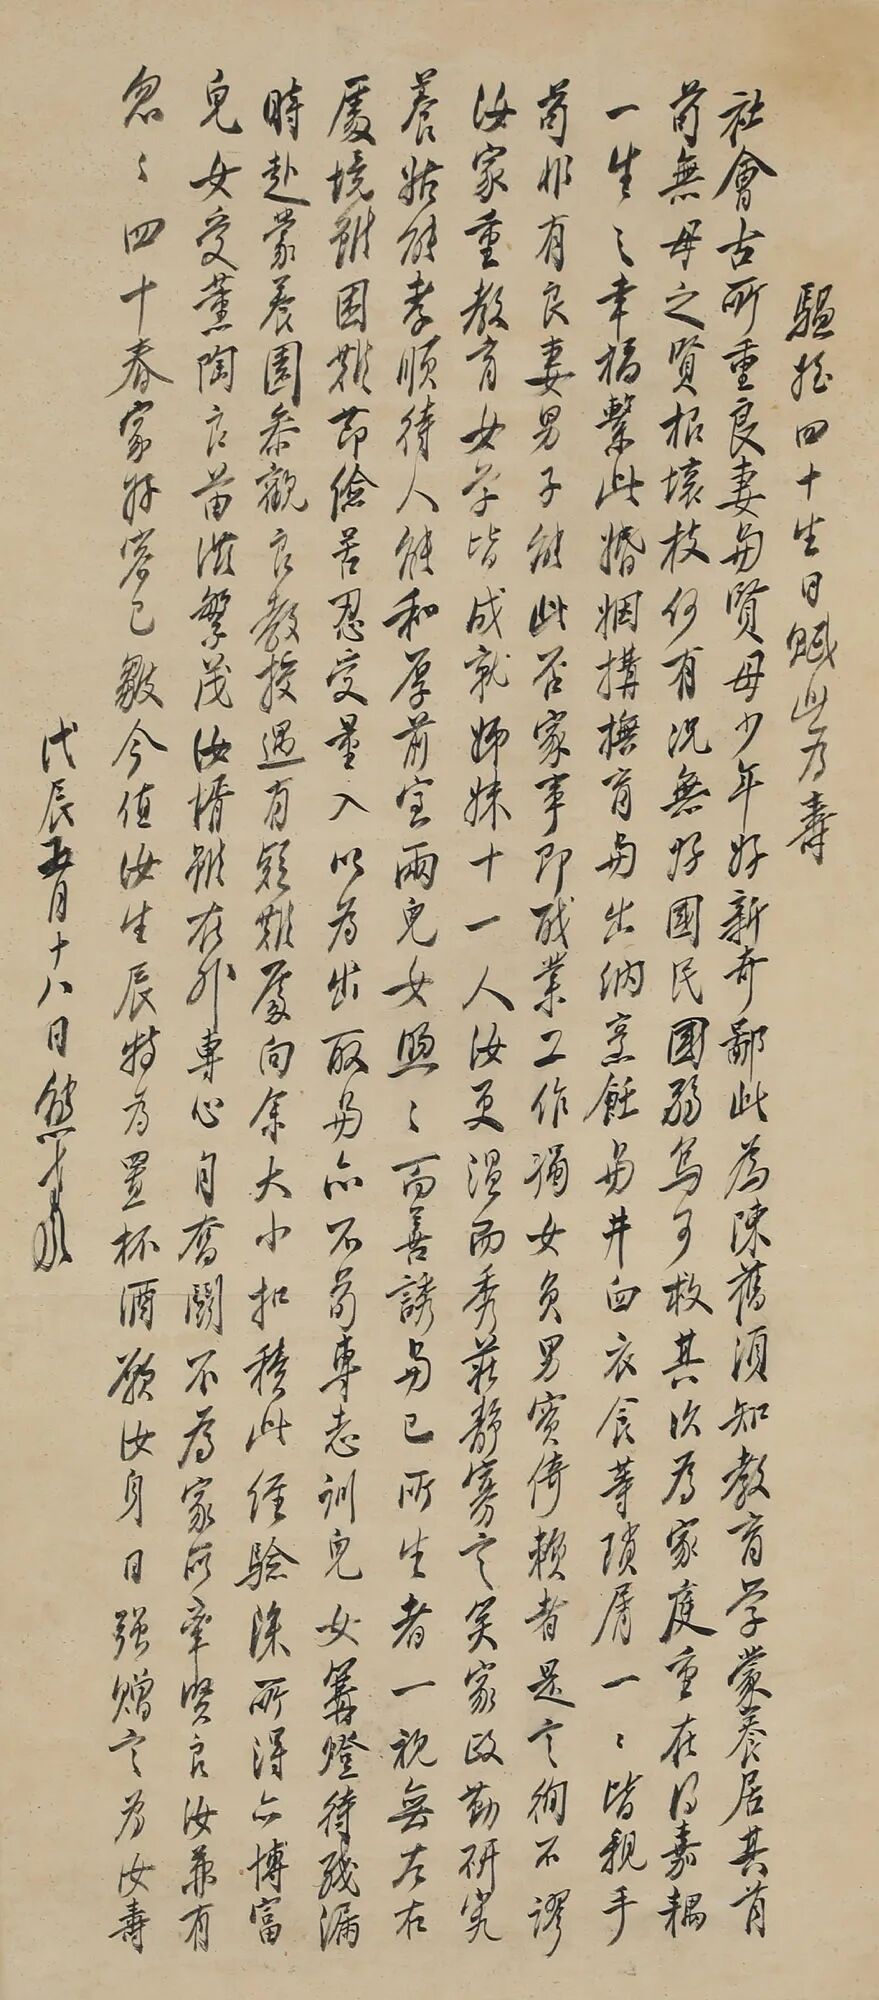 驅姪四十生日賦此為壽
社會古所重良妻與賢母少年好新奇鄙此為陳舊須知教育學蒙養居其首
苟無母之賢根壞枝何有況無好國民國弱烏可救其次為家庭重在得嘉耦
一生之幸福繫此婚姻搆撫育與出納烹飪與井臼衣食等瑣屑一一皆親手
苟非有良妻男子能此否家事即職業工作獨女負男實倚賴者是言徇不謬
汝家重教育女學皆成就姊妹十一人汝更溫而秀莊靜寡言笑家政勤研究
養姑能孝順待人能和厚前室兩兒女煦煦而善誘與已所生者一視無左右
處境雖困難節儉苦忍受量入以為出取與亦不苟專志訓兒女篝燈待殘漏
時赴蒙養園參觀良教授遇有疑難處向余大小扣積此經驗深所得亦博富
兒女受薰陶良苗滋繁茂汝婿雖在外專心自奮鬭不為家所牽賢良汝兼有
忽忽四十春家好容已皺今值汝生辰特為置杯酒願汝身日強贈言為汝壽
戊辰五月十八日熊